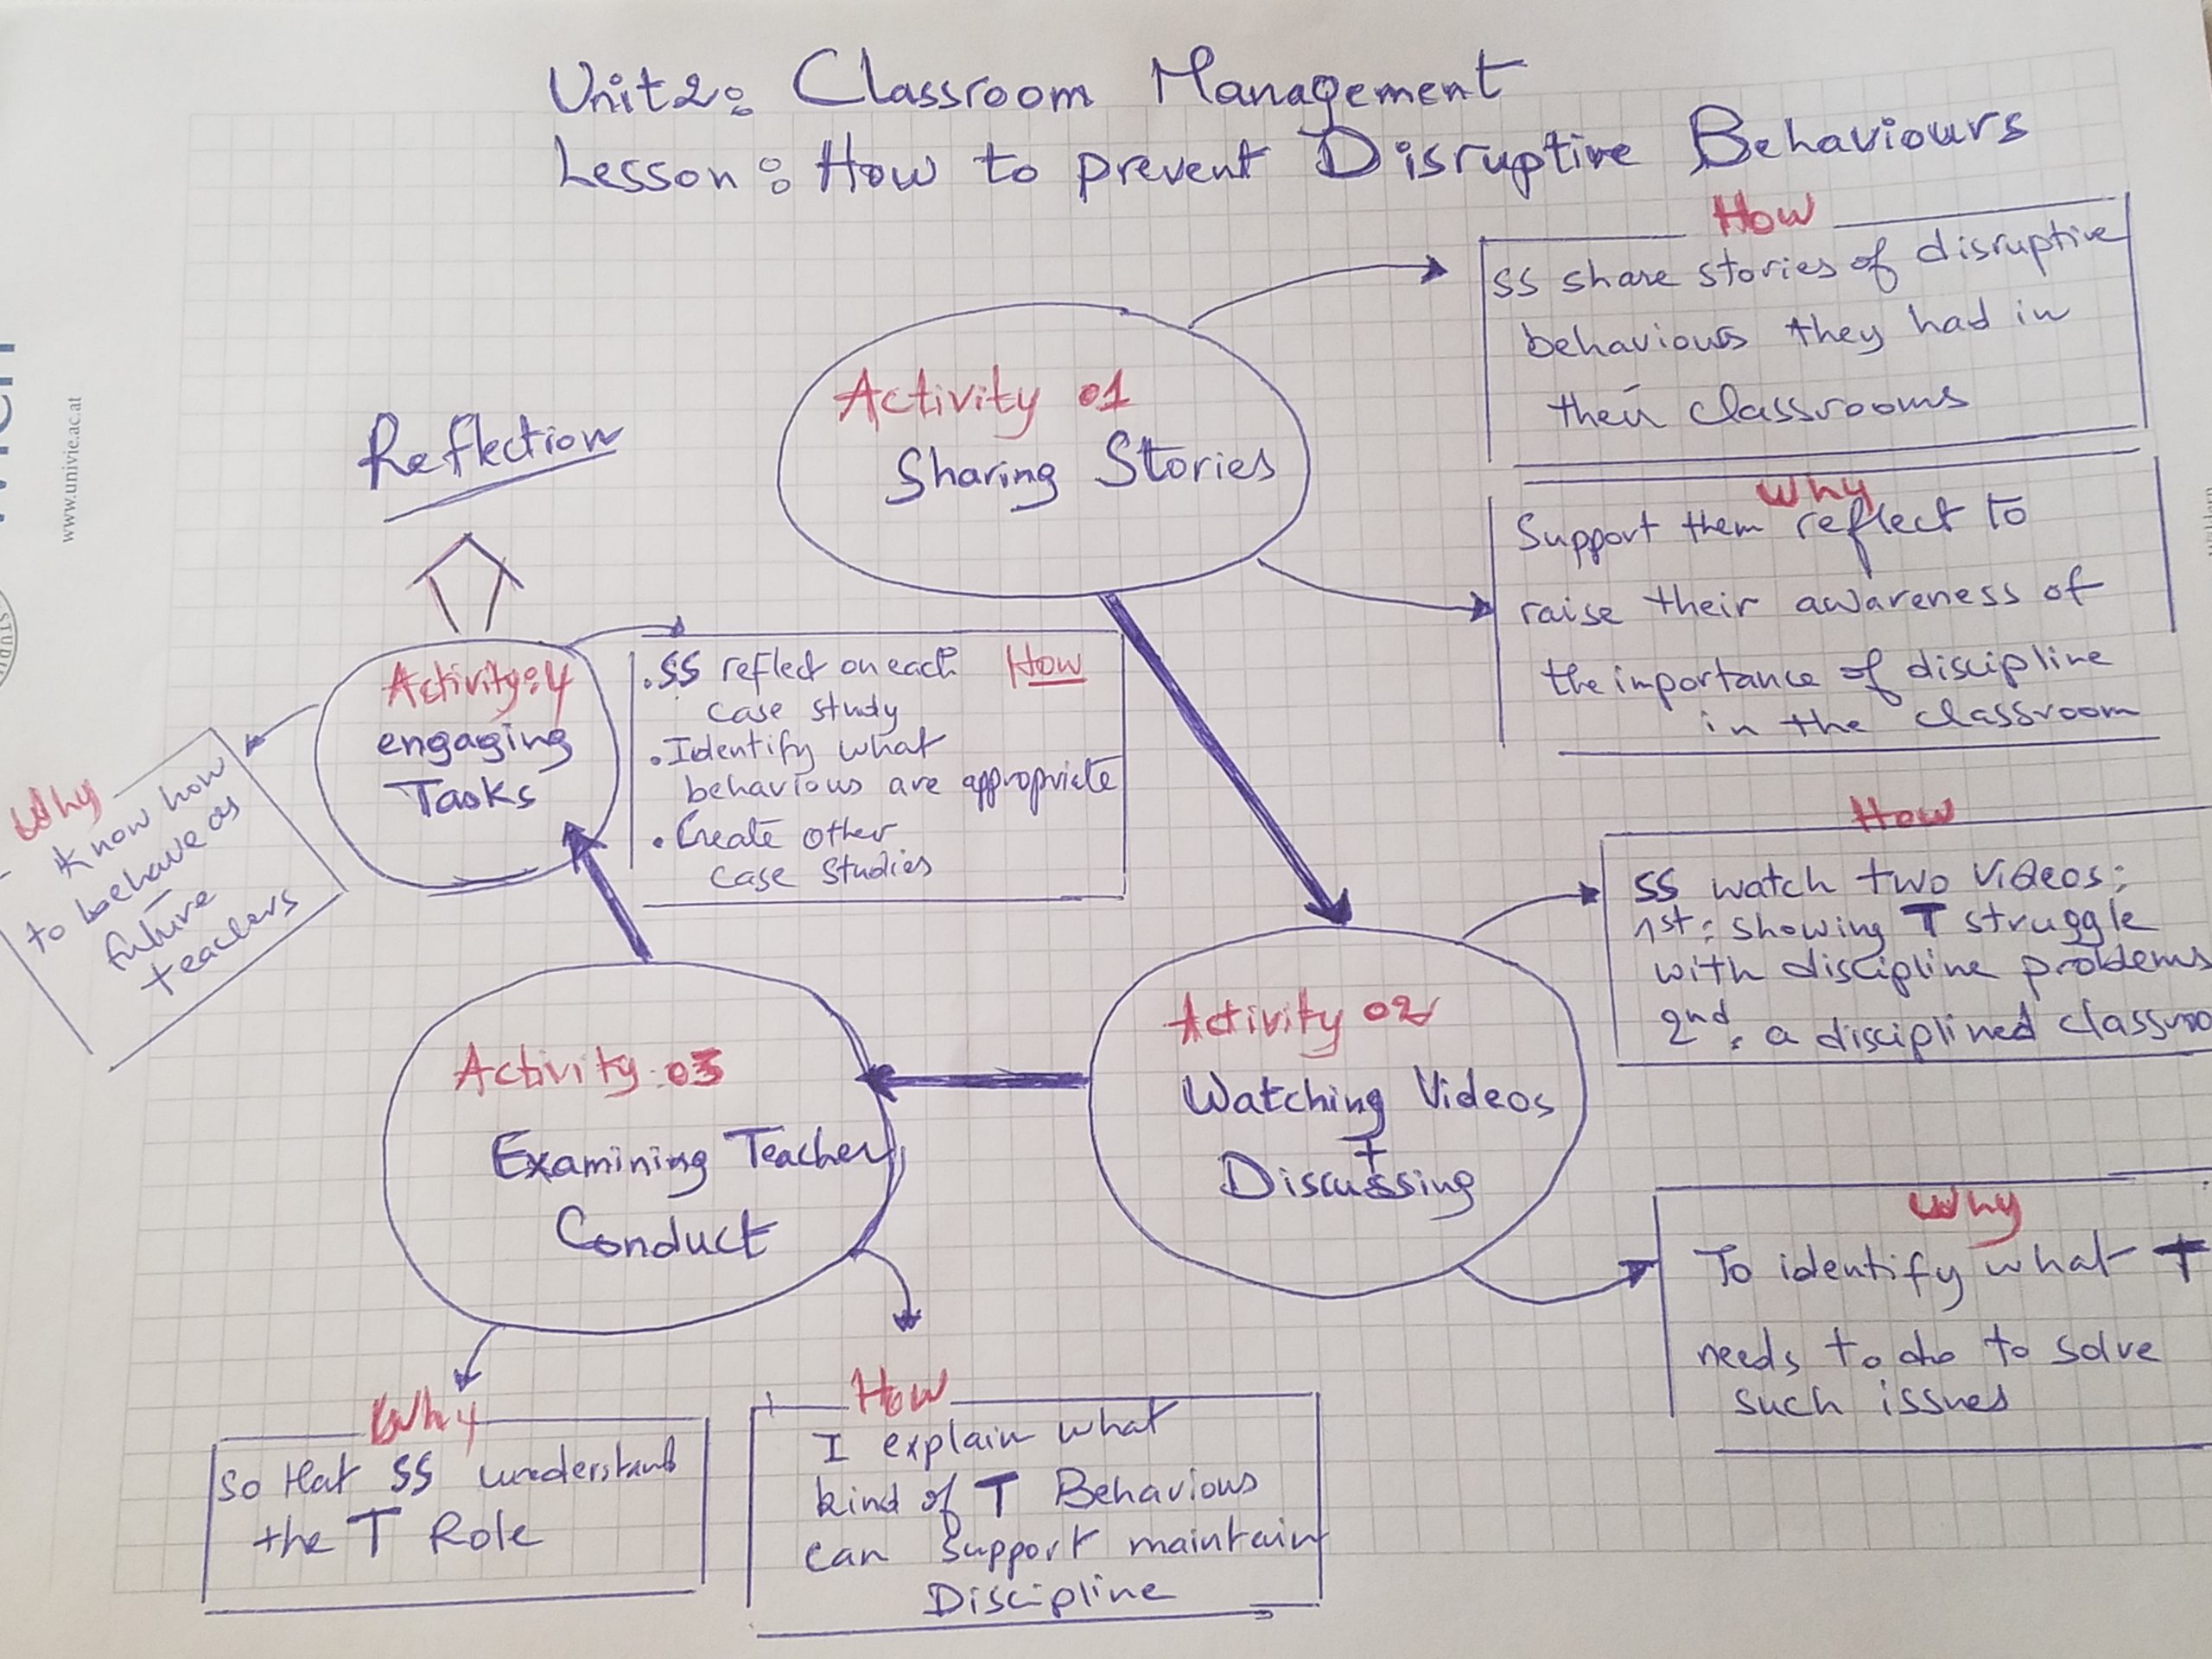 Unit2: Classroom Management
Lesson: How to prevent Disruptive Behaviours
How
SS share stories of disruptive
behaviours they had in
their classrooms
Activity 01
Sharing Stories
Why
Support them reflect to
raise their awareness of
the importance of discipline
in the classroom
Reflection
Activity:4
engaging
Tasks
How
.SS reflect on each
case study
•Identify what
behavious are appropriate
•Create other
case studies
Why
know how
to behave as
future
teachers
How
SS watch two Videos:
1st: showing T struggle
with discipline problems
2nd: a disciplined classroo
Activity 02
Watching Videos
+
Discussing
Why
To identify what T
needs to do to solve
such issues
Activity 03
Examining Teacher
Conduct
Why
So that SS understand
the T Role
How
I explain what
kind of T Behavious
can support maintain
Discipline
www.univie.ac.at